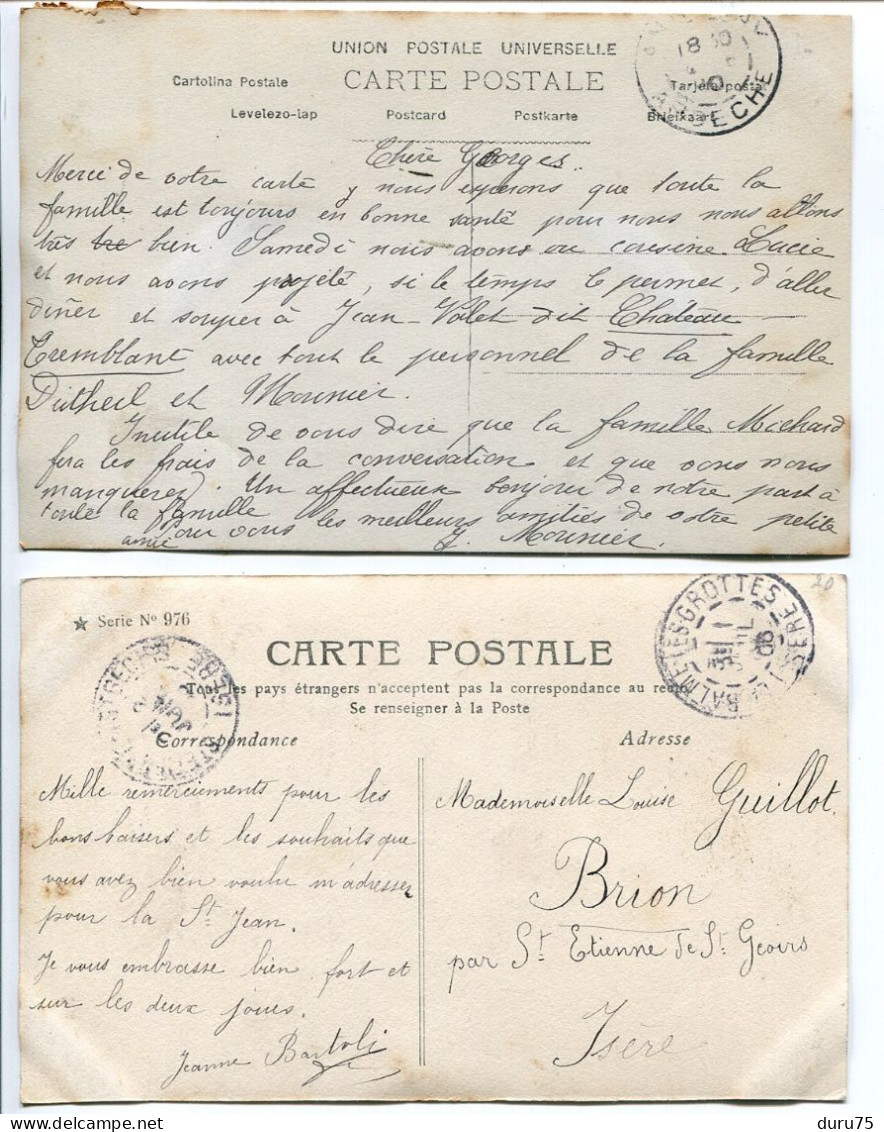 UNION POSTALE UNIVERSELLE
CARTE POSTALE
Cartolina Postale Tarjeta postal
Levelezo-lap Postcard Postkarte Briefkaart
18 30
ARDECHE
Chère Georges.
Merci de votre carte, nous esperons que toute la
famille est toujours en bonne santé pour nous nous allons
très tre bien. Samedi nous avons vu cousine Lucie
et nous avons projeté, si le temps le permet, d'aller
diner et souper à Jean-Valet dit Château
Tremblant avec tout le personnel de la famille
Dutheil et Mounier.
Inutile de vous dire que la famille Michard
fera les frais de la conversation et que vous nous
manquerez. Un affectueux bonjour de notre part à
toute la famille
Pour vous les meilleurs amitiés de votre petite
amie J. Mounier.
Serie Nº 976
CARTE POSTALE
Tous les pays étrangers n'acceptent pas la correspondance au recto
Se renseigner à la Poste
Correspondance Adresse
LA BALME-LES-GROTTES ISERE
1 JUIL 06
ISERE
Mille remerciements pour les
bons baisers et les souhaits que
vous avez bien voulu m'adresser
pour la St Jean.
Je vous embrasse bien fort et
sur les deux joues.
Jeanne Bartoli
Mademoiselle Louise Guillot.
Brion
par St Etienne de St Geoirs
Isère
20
duru75